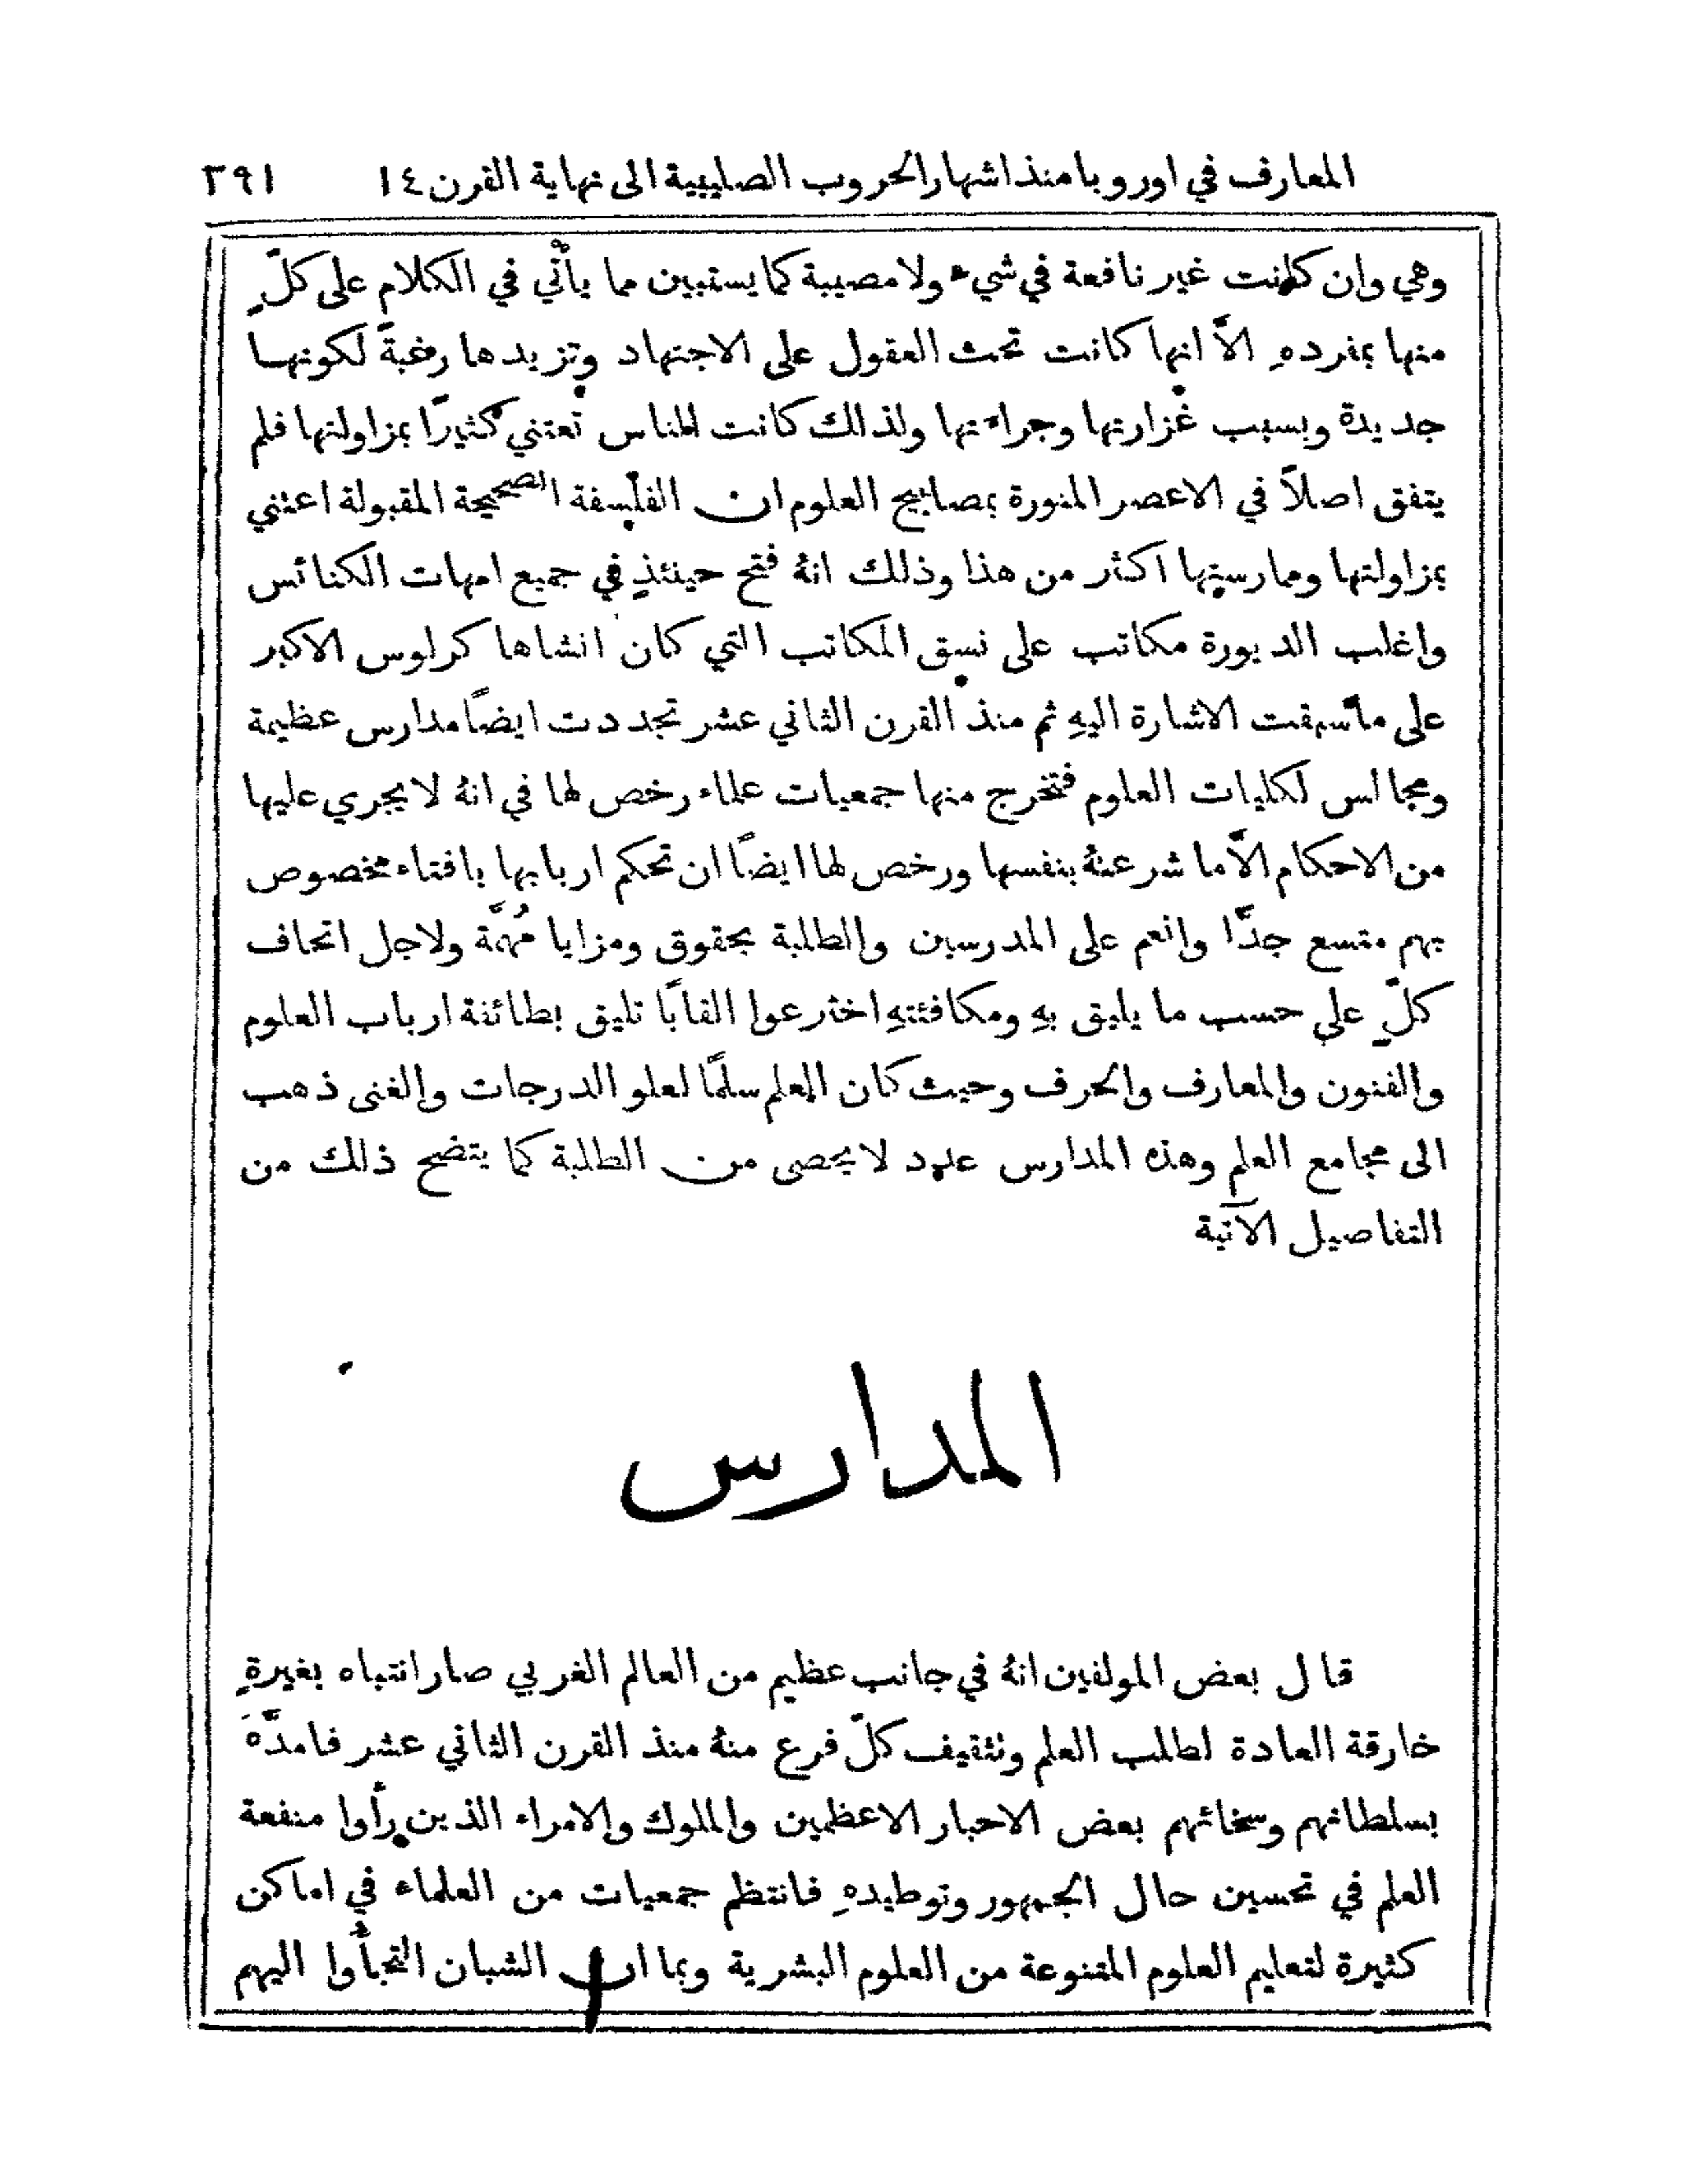 المعارف في اوروبا منذ اشهار الحروب الصليبية الى نهاية القرن ١٤ ٣٩١
وهي وان كانت غير نافعة في شيء ولا مصيبة كما يستبين مما يأتي في الكلام على كلٍّ
منها بمفرده الاَّ انها كانت تحث العقول على الاجتهاد وتزيدها رغبةً لكونها
جديدة وبسبب غزارتها وجراءتها ولذلك كانت الناس تعتني كثيرًا بمزاولتها فلم
يتفق اصلاً في الاعصر المنورة بمصابيح العلوم ان الفلسفة الصحيحة المقبولة اعتني
بمزاولتها وممارستها اكثر من هذا وذلك انهُ فتح حينئذٍ في جميع امهات الكنائس
واغلب الديورة مكاتب على نسق المكاتب التي كان انشاها كرلوس الاكبر
على ما سبقت الاشارة اليهِ ثم منذ القرن الثاني عشر تجددت ايضًا مدارس عظيمة
ومجالس لكليات العلوم فتخرج منها جمعيات علماء رخص لها في انهُ لا يجري عليها
من الاحكام الاَّ ما شرعتهُ بنفسها ورخص لها ايضًا ان تحكم اربابها بافتاء مخصوص
بهم متسع جدًّا وانعم على المدرسين والطلبة بحقوق ومزايا مُهمَّة ولاجل اتحاف
كلٍّ على حسب ما يليق بهِ ومكافئتهِ اخترعوا القابًا تليق بطائفة ارباب العلوم
والفنون والمعارف والحرف وحيث كان العلم سلمًا لعلو الدرجات والغنى ذهب
الى مجامع العلم وهذه المدارس عدد لا يحصى من الطلبة كما يتضح ذلك من
التفاصيل الآتية
المدارس
قال بعض المولفين انهُ في جانب عظيم من العالم الغربي صار انتباه بغيرةٍ
خارقة العادة لطلب العلم وتثقيف كلّ فرع منهُ منذ القرن الثاني عشر فامدَّهَ
بسلطانهم وسخائهم بعض الاحبار الاعظمين والملوك والامراء الذين رأوا منفعة
العلم في تحسين حال الجمهور وتوطيدهِ فانتظم جمعيات من العلماء في اماكن
كثيرة لتعليم العلوم المتنوعة من العلوم البشرية وبما ان الشبان التجأوا اليهم